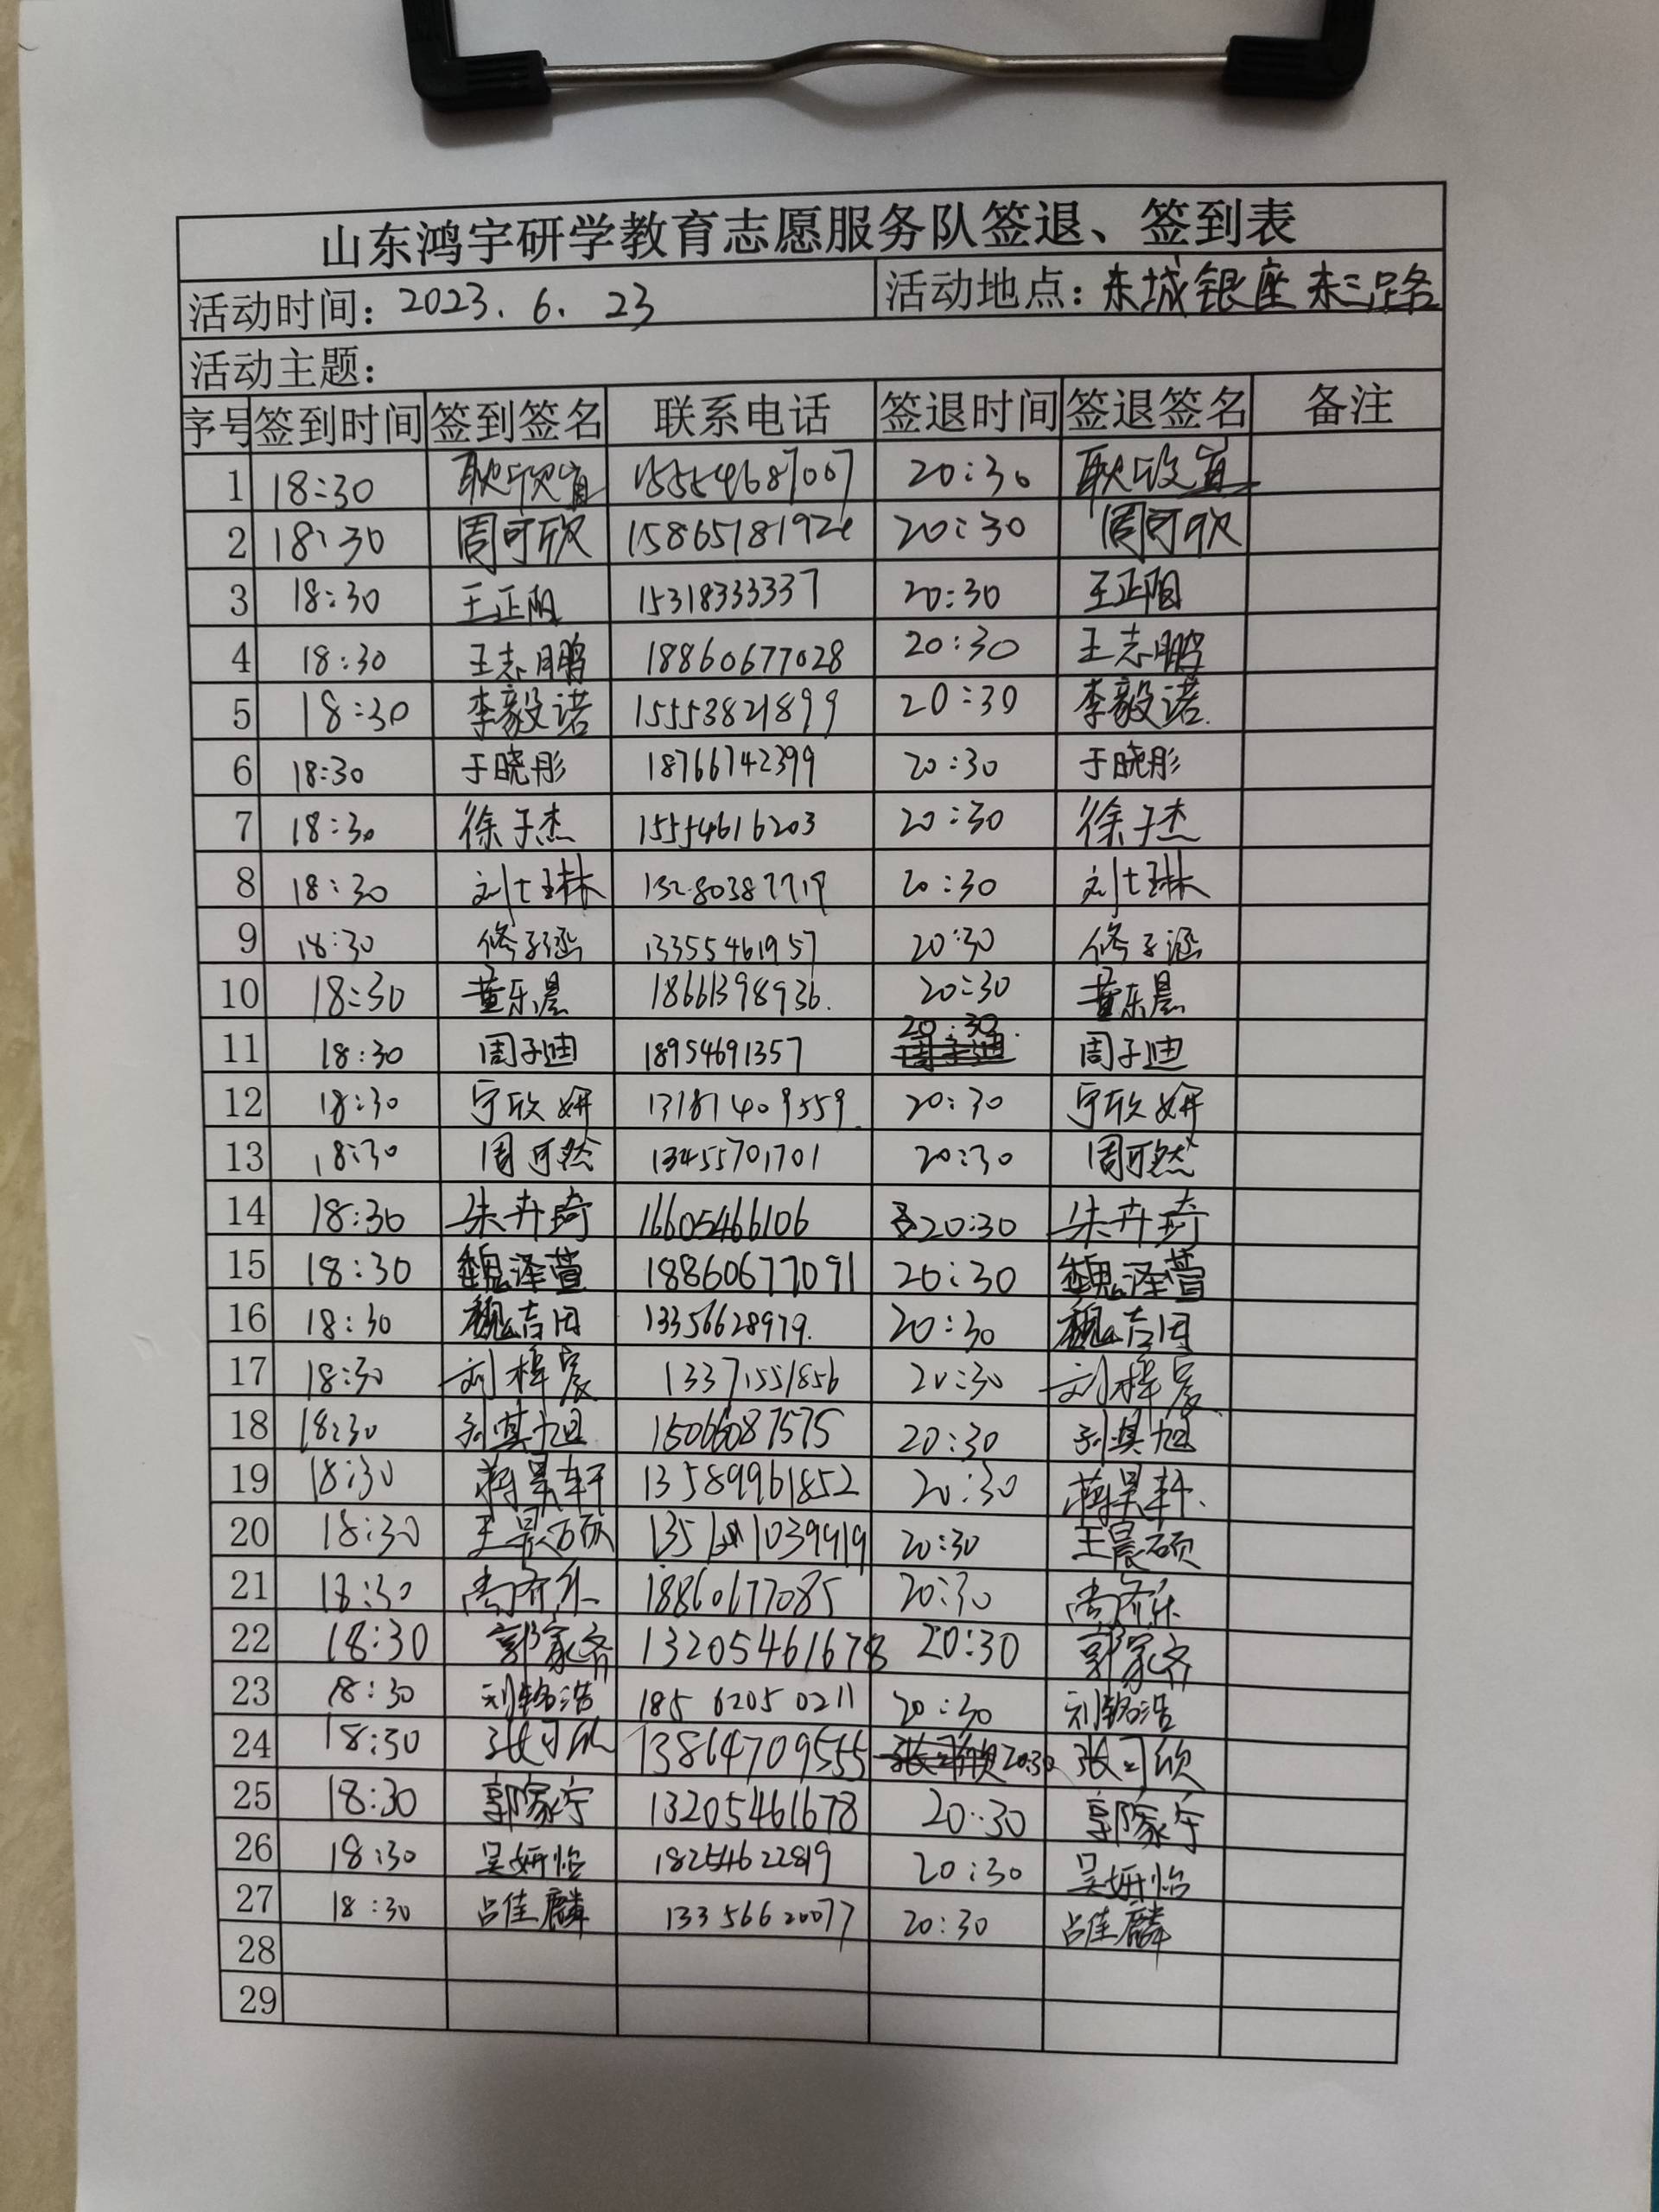 山东鸿宇研学教育志愿服务队签退、签到表
活动时间：2023.6.23 活动地点：东城银座东三路
活动主题：
序号 签到时间 签到签名 联系电话 签退时间 签退签名 备注
1 18:30 耿欣宜 15554687007 20:30 耿欣宜
2 18:30 周可欣 20:30 周可欣
3 18:30 王正阳 15318333337 20:30 王正阳
4 18:30 王志鹏 18860677028 20:30 王志鹏
5 18:30 李毅诺 15553821899 20:30 李毅诺
6 18:30 于晓彤 18766742399 20:30 于晓彤
7 18:30 徐子杰 15554616203 20:30 徐子杰
8 18:30 20:30
9 18:30 修子涵 13355461957 20:30 修子涵
10 18:30 董乐晨 18661398936. 20:30 董乐晨
11 18:30 周子迪 18954691357 20:30. 周子迪
12 18:30 宁欣妍 13181409559. 20:30 宁欣妍
13 18:30 周可然 13455701701 20:30 周可然
14 18:30 朱卉琦 16605466106 20:30 朱卉琦
15 18:30 魏泽萱 18860677091 20:30 魏泽萱
16 18:30 13356628979. 20:30
17 18:30 刘梓宸 13371551856 20:30 刘梓宸
18 18:30 刘其旭 15066087575 20:30 刘其旭
19 18:30 蒋昊轩 13589961852 20:30 蒋昊轩
20 18:30 王晨硕 20:30 王晨硕
21 18:30 尚济乐 18860677085 20:30 尚济乐
22 18:30 郭家齐 13205461678 20:30 郭家齐
23 18:30 刘铭浩 185 6205 0211 20:30 刘铭浩
24 18:30 张可欣 13864709555 20:30 张可欣
25 18:30 郭家宁 13205461678 20:30 郭家宁
26 18:30 吴妍怡 18254622819 20:30 吴妍怡
27 18:30 吕佳麟 13356620077 20:30 吕佳麟
28
29